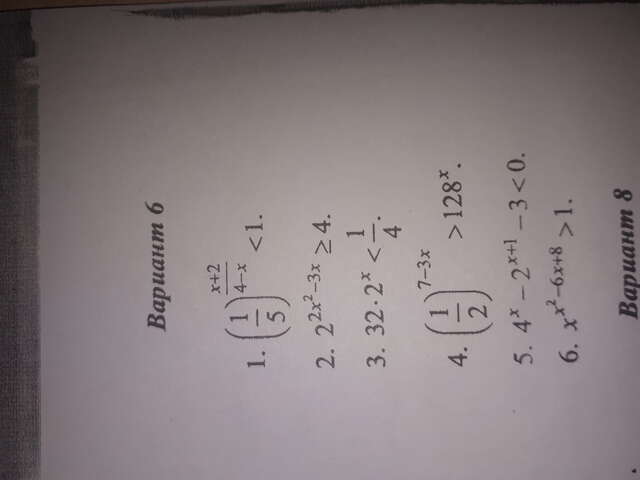 Вариант 6
1. (1/5)^((x+2)/(4−x)) < 1.
2. 2^(2x²−3x) ≥ 4.
3. 32·2^x < 1/4.
4. (1/2)^(7−3x) > 128^x.
5. 4^x − 2^(x+1) − 3 < 0.
6. x^(x²−6x+8) > 1.
Вариант 8